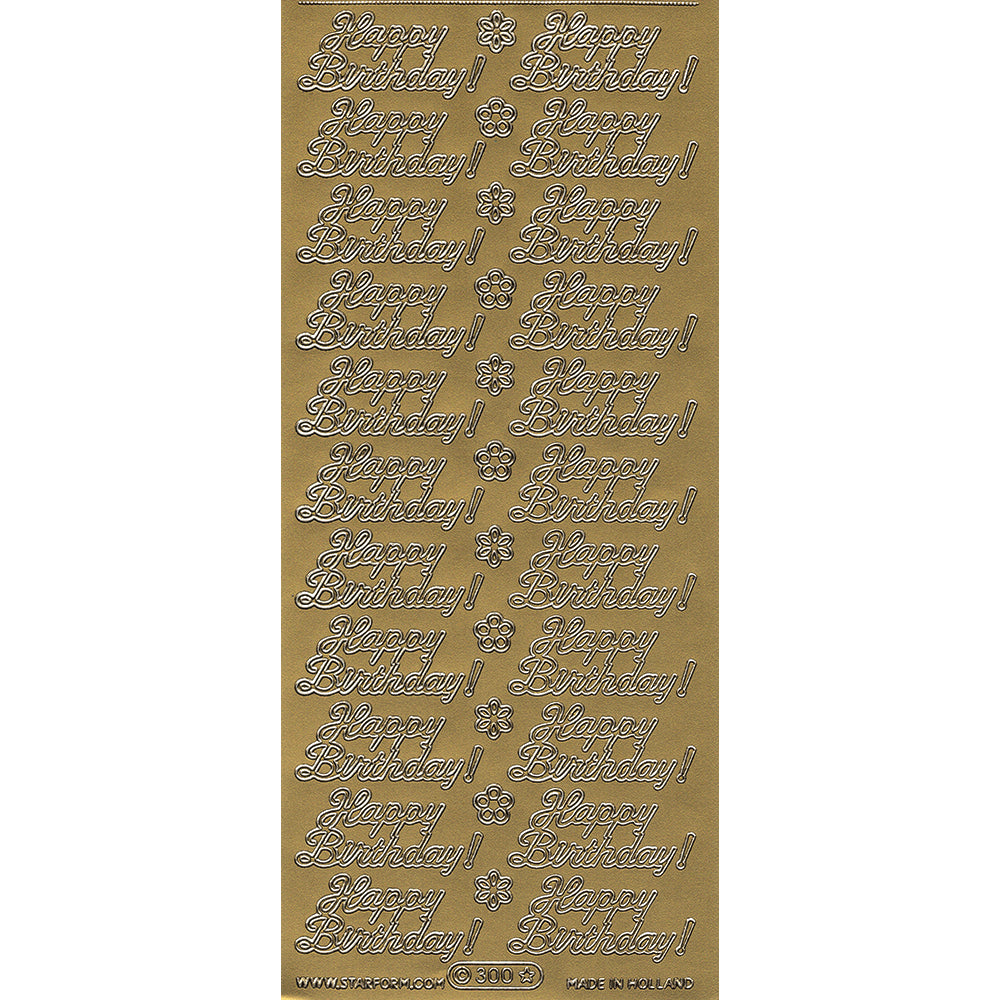 Happy Happy
Birthday! Birthday!
Happy Happy
Birthday! Birthday!
Happy Happy
Birthday! Birthday!
Happy Happy
Birthday! Birthday!
Happy Happy
Birthday! Birthday!
Happy Happy
Birthday! Birthday!
Happy Happy
Birthday! Birthday!
Happy Happy
Birthday! Birthday!
Happy Happy
Birthday! Birthday!
Happy Happy
Birthday! Birthday!
Happy Happy
Birthday! Birthday!
WWW.STARFORM.COM © 300 ☆ MADE IN HOLLAND